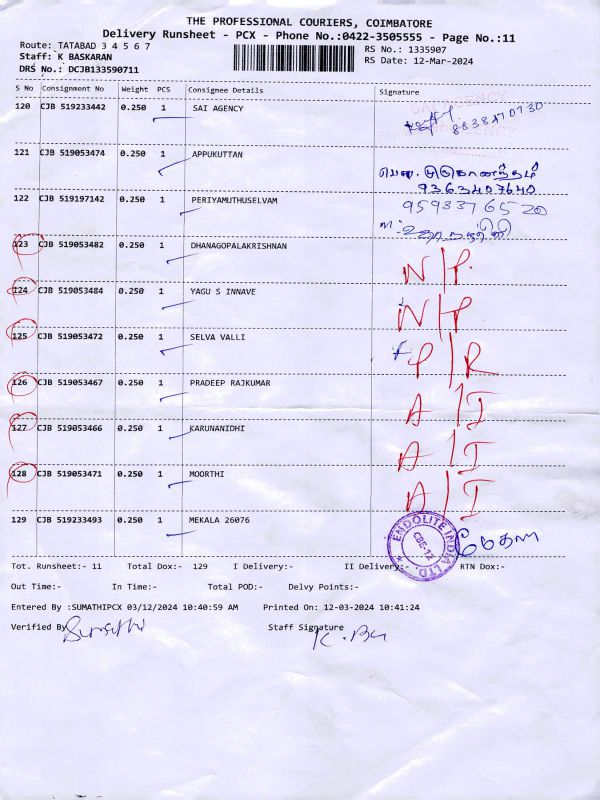 THE PROFESSIONAL COURIERS, COIMBATORE
Delivery Runsheet - PCX - Phone No.:0422-3505555 - Page No.:11
Route: TATABAD 3 4 5 6 7
RS No.: 1335907
Staff: K BASKARAN
RS Date: 12-Mar-2024
DRS No.: DCJB133590711
S No Consignment No Weight PCS Consignee Details Signature
120 CJB 519233442 0.250 1 SAI AGENCY
SAI AGENCY
121 CJB 519053474 0.250 1 APPUKUTTAN
9363407640
122 CJB 519197142 0.250 1 PERIYAMUTHUSELVAM
9593376520
123 CJB 519053482 0.250 1 DHANAGOPALAKRISHNAN
N/P.
124 CJB 519053484 0.250 1 YAGU S INNAVE
N/P
125 CJB 519053472 0.250 1 SELVA VALLI
P/R
126 CJB 519053467 0.250 1 PRADEEP RAJKUMAR
A/I
127 CJB 519053466 0.250 1 KARUNANIDHI
A/I
128 CJB 519053471 0.250 1 MOORTHI
A/I
129 CJB 519233493 0.250 1 MEKALA 26076
ENDOLITE INDIA LTD.
CBE-12
Tot. Runsheet:- 11 Total Dox:- 129 I Delivery:- II Delivery:- RTN Dox:-
Out Time:- In Time:- Total POD:- Delvy Points:-
Entered By :SUMATHIPCX 03/12/2024 10:40:59 AM Printed On: 12-03-2024 10:41:24
Verified By Sumathi Staff Signature